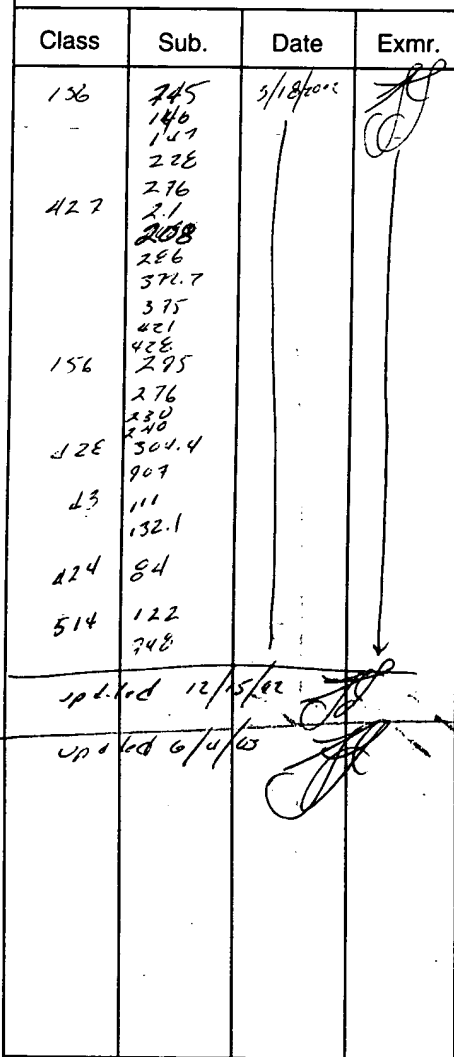 Class Sub. Date Exmr.
156 745 5/18/2002
146
147
228
276
427 2.1
208
286
372.7
375
421
428
156 275
276
230
240
428 304.4
907
43 111
132.1
424 84
514 122
748
updated 12/15/02
updated 6/4/03